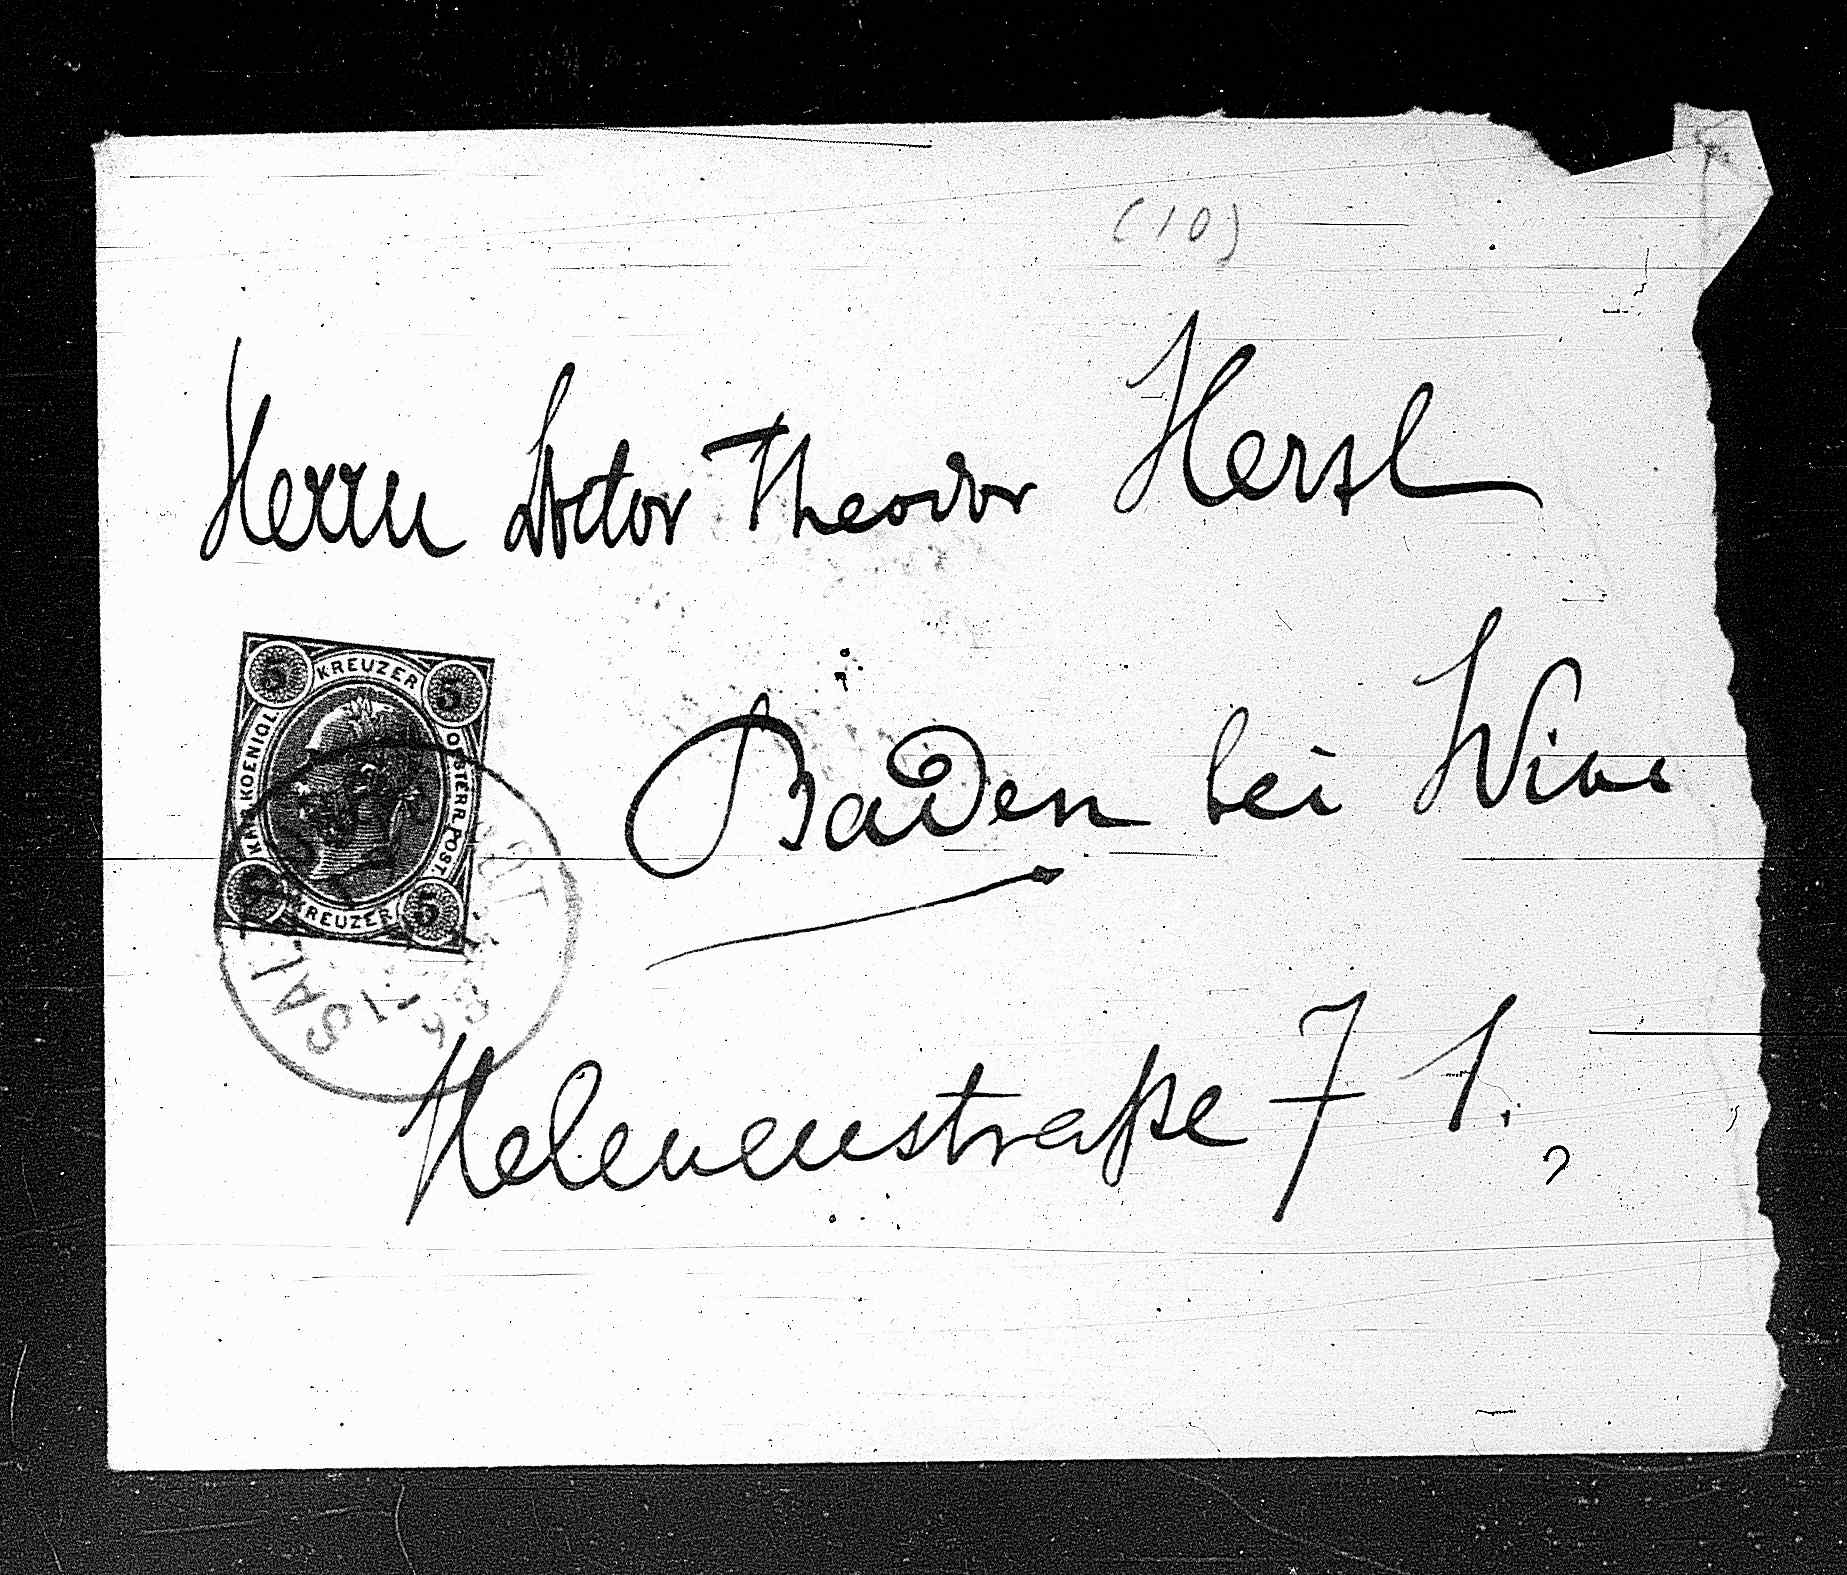 (10)
Herrn Doctor Theodor Herzl
KREUZER
5 5
KAIS. KOENIGL. OESTERR. POST.
5 5
KREUZER
Baden bei Wien
Helenenstraße 71.